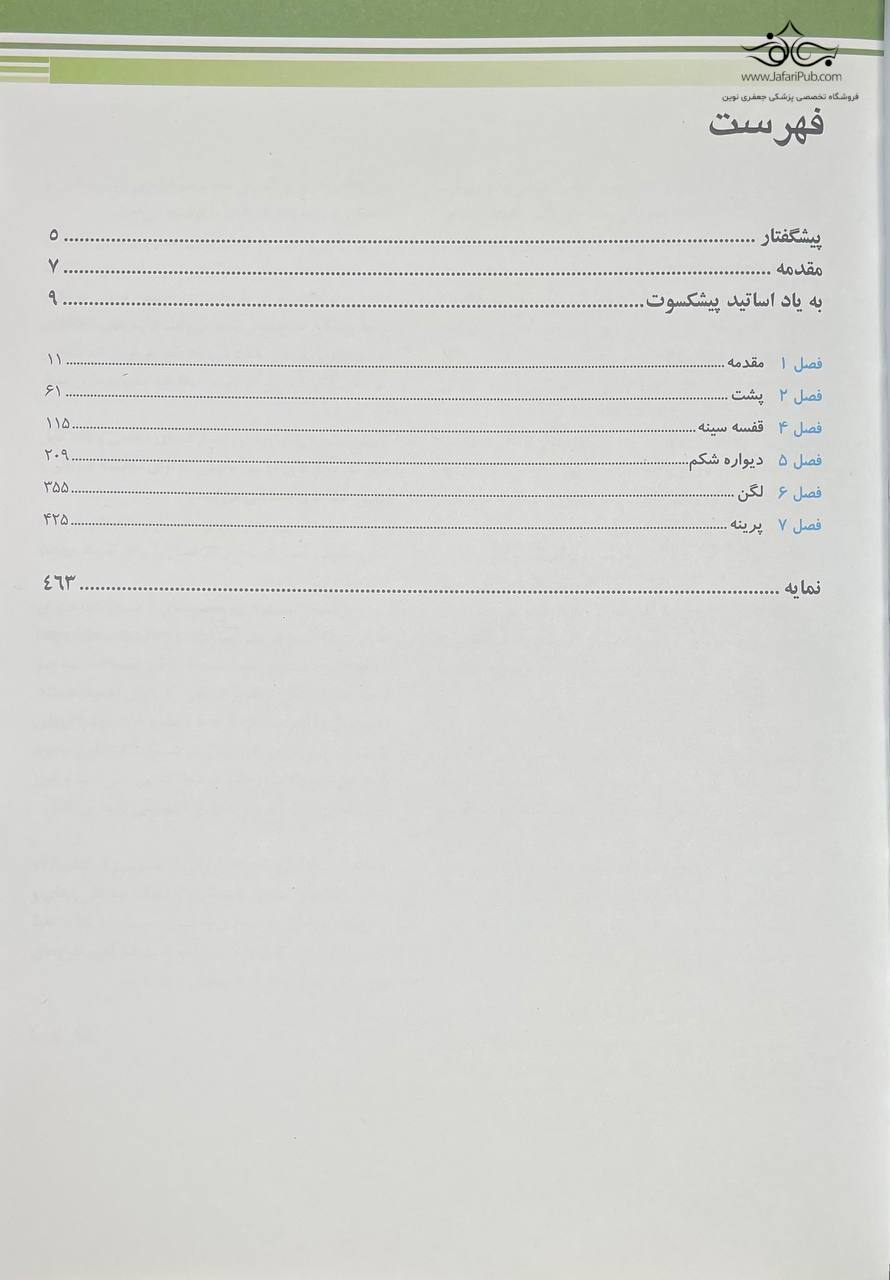 www.JafariPub.com
فروشگاه تخصصی پزشکی جعفری نوین
فهرست
پیشگفتار ........ ۵
مقدمه ........ ۷
به یاد اساتید پیشکسوت ........ ۹
فصل ۱ مقدمه ........ ۱۱
فصل ۲ پشت ........ ۶۱
فصل ۴ قفسه سینه ........ ۱۱۵
فصل ۵ دیواره شکم ........ ۲۰۹
فصل ۶ لگن ........ ۳۵۵
فصل ۷ پرینه ........ ۴۲۵
نمایه ........ ٤٦٣